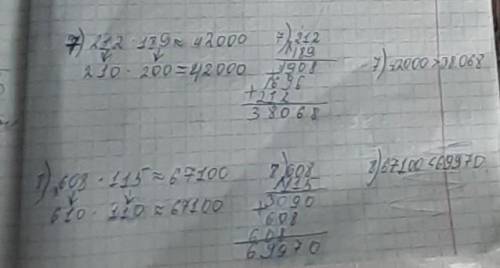 7) 212 · 179 ≈ 42000
210 · 200 = 42000
7) 212
189
1908
1696
+ 212
38068
7) 42000 > 38068
8) 608 · 115 ≈ 67100
610 · 110 ≈ 67100
8) 608
115
3090
+ 608
608
69970
8) 67100 < 69970